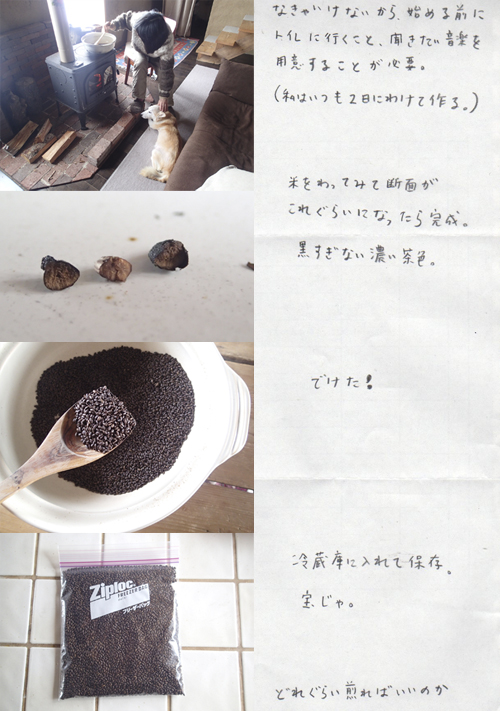 なきゃいけないから、始める前に
トイレに行くこと、聞きたい音楽を
用意することが必要。
(私はいつも2日にわけて作る。)
米をわってみて断面が
これぐらいになったら完成。
黒すぎない濃い茶色。
でけた!
冷蔵庫に入れて保存。
宝じゃ。
Ziploc
フリーザーバッグ
どれぐらい煎ればいいのか